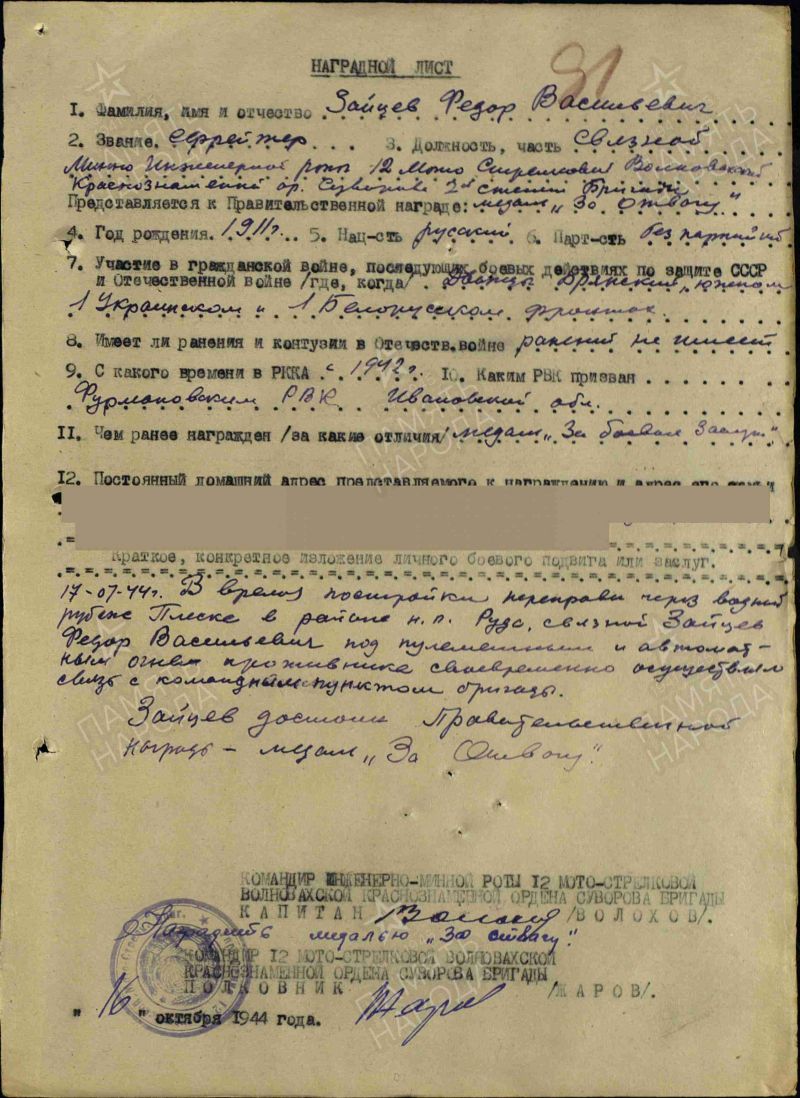 91
НАГРАДНОЙ ЛИСТ
1. Фамилия, имя и отчество Зайцев Федор Васильевич
2. Звание. ефрейтор 3. Должность, часть Связной
Минно Инженерной роты 12 Мото Стрелковой
Краснознаменной ор. Суворова 2й степени Бригады
Представляется к Правительственной награде: медали „За отвагу"
4. Год рождения. 1911г. 5. Нац-сть русский 6. Парт-сть без партийный
7. Участие в гражданской войне, последующих боевых действиях по защите СССР
и Отечественной войне /где, когда/ Брянский, южном
1 Украинском и 1 Белорусском фронтах.
8. Имеет ли ранения и контузии в Отечеств.войне ранений не имеет
9. С какого времени в РККА с 1942г. 10. Каким РВК призван
Фурмановским РВК Ивановской обл.
11. Чем ранее награжден /за какие отличия/ медаль „За боевые заслуги"
12. Постоянный домашний адрес представляемого к награждению и адрес его семьи
Краткое, конкретное изложение личного боевого подвига или заслуг.
17-07-44г. В время постройки переправы через водный
рубеж в районе н.п. Руда, связной Зайцев
Федор Васильевич под пулеметным и автомат-
ным огнем противника своевременно осуществлял
связь с командным пунктом бригады.
Зайцев достоин Правительственной
награды – медали „За Отвагу".
КОМАНДИР ИНЖЕНЕРНО-МИННОЙ РОТЫ 12 МОТО-СТРЕЛКОВОЙ
ВОЛНОВАХСКОЙ КРАСНОЗНАМЕННОЙ ОРДЕНА СУВОРОВА БРИГАДЫ
КАПИТАН /ВОЛОХОВ/.
Наградить медалью „За отвагу".
КОМАНДИР 12 МОТО-СТРЕЛКОВОЙ ВОЛНОВАХСКОЙ
КРАСНОЗНАМЕННОЙ ОРДЕНА СУВОРОВА БРИГАДЫ
ПОЛКОВНИК Жаров /ЖАРОВ/.
" 16 " октября 1944 года.
ПАМЯТЬ НАРОДА